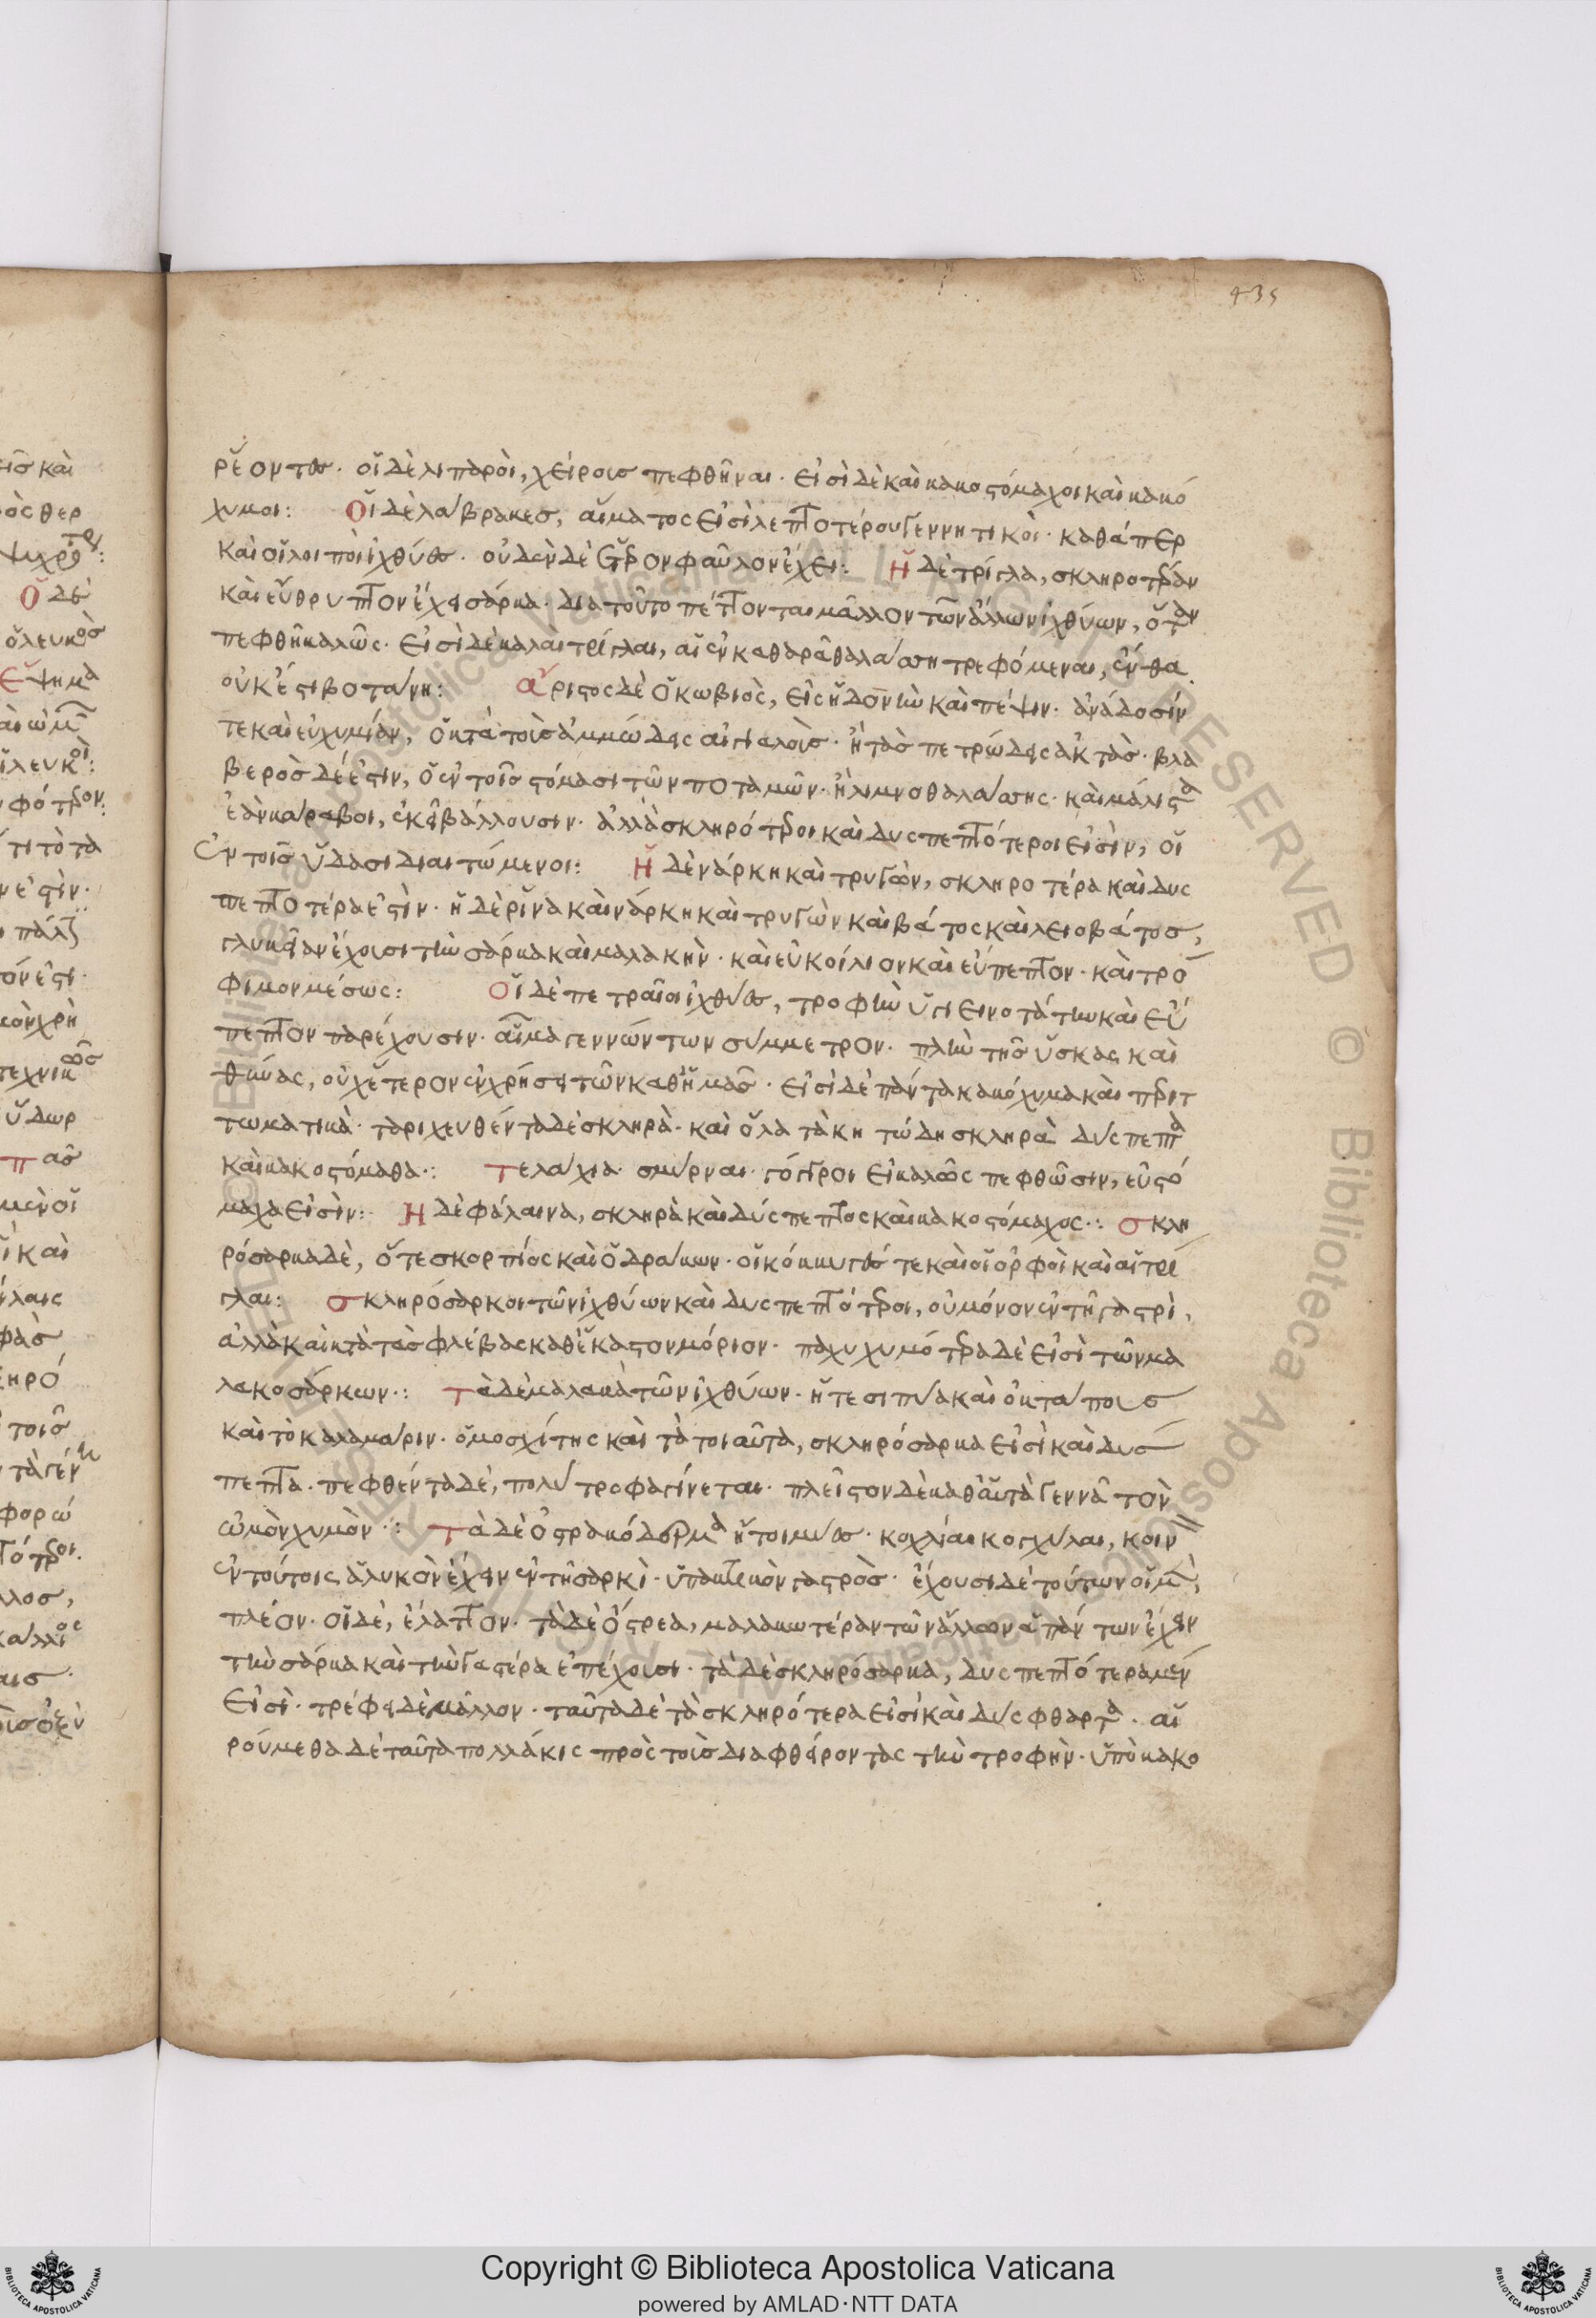 435
ρέοντες. οἱ δὲ λιπαροὶ, χείροις πεφθῆναι. εἰσὶ δὲ καὶ κακοστόμαχοι καὶ κακό
χυμοι: Οἱ δὲ λάβρακες, αἵματος εἰσὶ λεπτοτέρου γεννητικοὶ. καθάπερ
καὶ οἱ λοιποὶ ἰχθύες. οὐδὲν δὲ ἕτερον φαῦλον ἔχει: Ἡ δὲ τρίγλα, σκληροτέραν
καὶ εὔθρυπτον ἔχει σάρκα. διατοῦτο πέττονται μᾶλλον τῶν ἄλλων ἰχθύων, ὅταν
πεφθῆ καλῶς. εἰσὶ δὲ καλαὶ τρίγλαι, αἱ ἐν καθαρᾶ θαλάσση τρεφόμεναι, ἔνθα
οὐκ ἔστι βοτάνη: ἄριστος δὲ ὁ κωβιὸς, εἰς ἡδονὴν καὶ πέψιν. ἀνάδοσίν
τε καὶ εὐχυμίαν, ὁ κατὰ τοὺς ἀμμώδεις αἰγιαλοὺς. ἢ τὰς πετρώδεις ἀκτὰς. βλα
βερὸς δέ ἐστιν, ὁ ἐν τοῖς στόμασι τῶν ποταμῶν. ἢ λιμνοθαλάσσης. καὶ μάλιστα
ἐὰν κάραβοι, ἐκεῖ βάλλουσιν. ἀλλὰ σκληρότεροι καὶ δυσπεπτότεροι εἰσὶν, οἱ
ἐν τοῖς ὕδασι διαιτώμενοι: Ἡ δὲ νάρκη καὶ τρυγὼν, σκληροτέρα καὶ δυς
πεπτοτέρα ἐστὶν. ἡ δὲ ῥίνα καὶ νάρκη καὶ τρυγὼν καὶ βάτος καὶ λειοβάτος,
γλυκεῖαν ἔχουσι τὴν σάρκα καὶ μαλακὴν. καὶ εὐκοίλιον καὶ εὔπεπτον. καὶ τρό
φιμον μέσως: Οἱ δὲ πετραῖοι ἰχθύες, τροφὴν ὑγιεινοτάτην καὶ εὔ
πεπτον παρέχουσιν. αἷμα γεννώντων σύμμετρον. πλὴν τῆς ὕσκας καὶ
θύνας, οὐχ ἕτερον ἐν χρήσει τῶν καθ' ἡμᾶς. εἰσὶ δὲ πάντα κακόχυμα καὶ περιτ
τωματικὰ. ταριχευθέντα δὲ σκληρὰ. καὶ ὅλα τὰ κητώδη σκληρὰ δύσπεπτα
καὶ κακοστόμαχα: Τελάχια σμύρναι. γόγγροι εἰ καλῶς πεφθῶσιν, εὐστό
μαχα εἰσὶν: Ἡ δὲ φάλαινα, σκληρὰ καὶ δύσπεπτος καὶ κακοστόμαχος: Σκλη
ρόσαρκα δὲ, ὅτε σκορπίος καὶ ὁ δράκων. οἱ κόκκυγές τε καὶ οἱ ὀρφοὶ καὶ αἱ τρί
γλαι: Σκληρόσαρκοι τῶν ἰχθύων καὶ δυσπεπτότεροι, οὐ μόνον ἐν τῆ γαστρὶ,
ἀλλὰ καὶ κατὰ τὰς φλέβας καθ' ἕκαστον μόριον. παχυχυμότερα δὲ εἰσὶ τῶν μα
λακοσάρκων: Τὰ δὲ μαλακὰ τῶν ἰχθύων. ἥτε σιπύα καὶ ὀκτάπους
καὶ τὸ καλαμάριν. ὁ μοσχίτης καὶ τὰ τοιαῦτα, σκληρόσαρκα εἰσὶ καὶ δύς
πεπτα. πεφθέντα δὲ, πολύτροφα γίνεται. πλεῖστον δὲ καθ' αὑτὰ γεννᾶ τὸν
ὠμὸν χυμὸν: Τὰ δὲ ὀστρακόδερμα ἤτοι μύες. κοχλίαι κογχύλαι, κοιν
ἐν τούτοις ἁλυκὸν ἔχειν ἐν τῆ σαρκὶ. ὑπακτικὸν γαστρὸς. ἔχουσι δὲ τούτων οἱ μὲν,
πλέον. οἱ δὲ, ἔλαττον. τὰ δὲ ὄστρεα, μαλακωτέραν τῶν ἄλλων ἁπάντων ἔχειν
τὴν σάρκα καὶ τὴν γαστέρα ἐπέχουσι. τὰ δὲ σκληρόσαρκα, δυσπεπτότερα μέν
εἰσὶ. τρέφει δὲ μᾶλλον. ταῦτα δὲ τὰ σκληρότερα εἰσὶ καὶ δύσφθαρτα. αἱ
ρούμεθα δὲ ταῦτα πολλάκις πρὸς τοὺς διαφθείροντας τὴν τροφὴν. ὑπὸ κακο
Copyright © Biblioteca Apostolica Vaticana
powered by AMLAD·NTT DATA